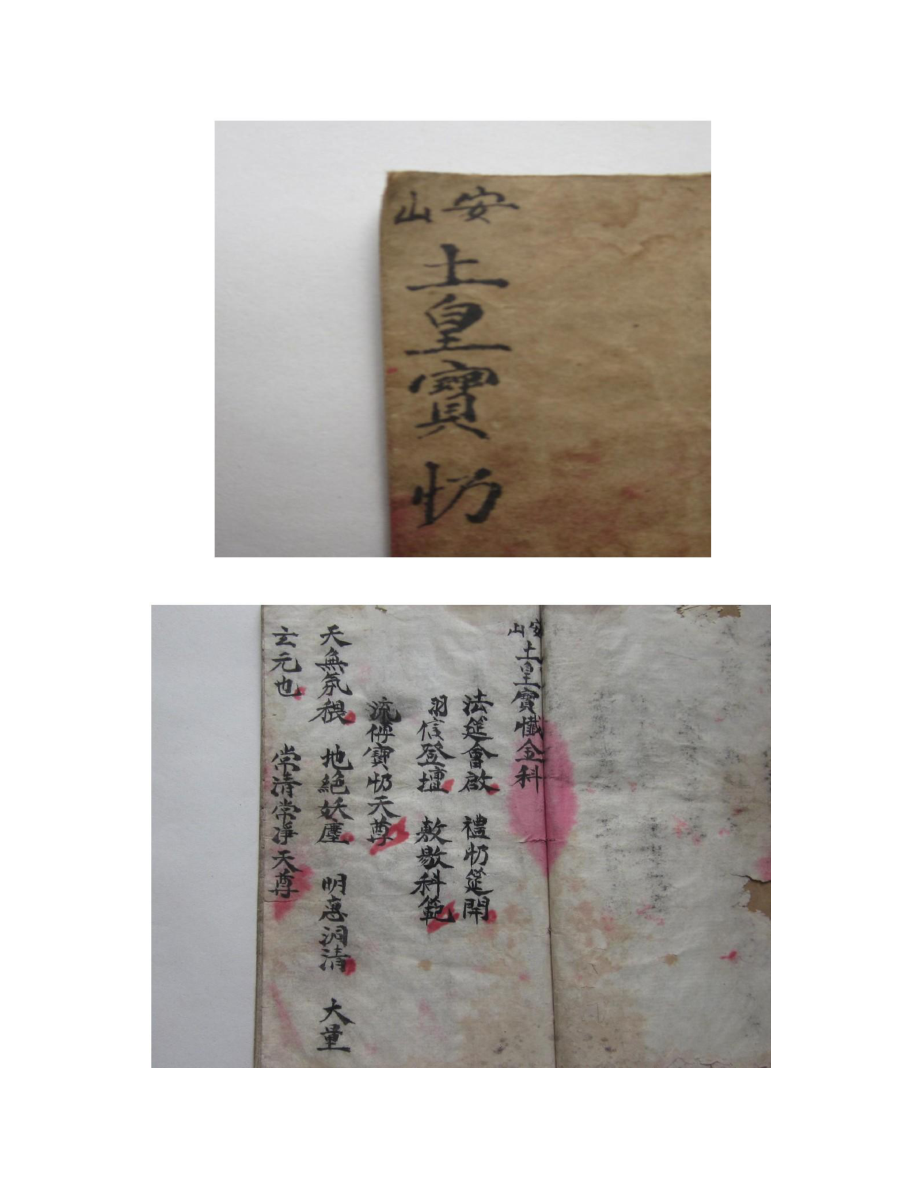 安山
土皇寶忉
安山土皇寶懺金科
法筵會啟 禮忉筵開
羽信登壇 敷敭科範
流傳寶忉天尊
天無氛穢 地絕妖塵 明惠洞清 大量
玄元也 常清常淨天尊